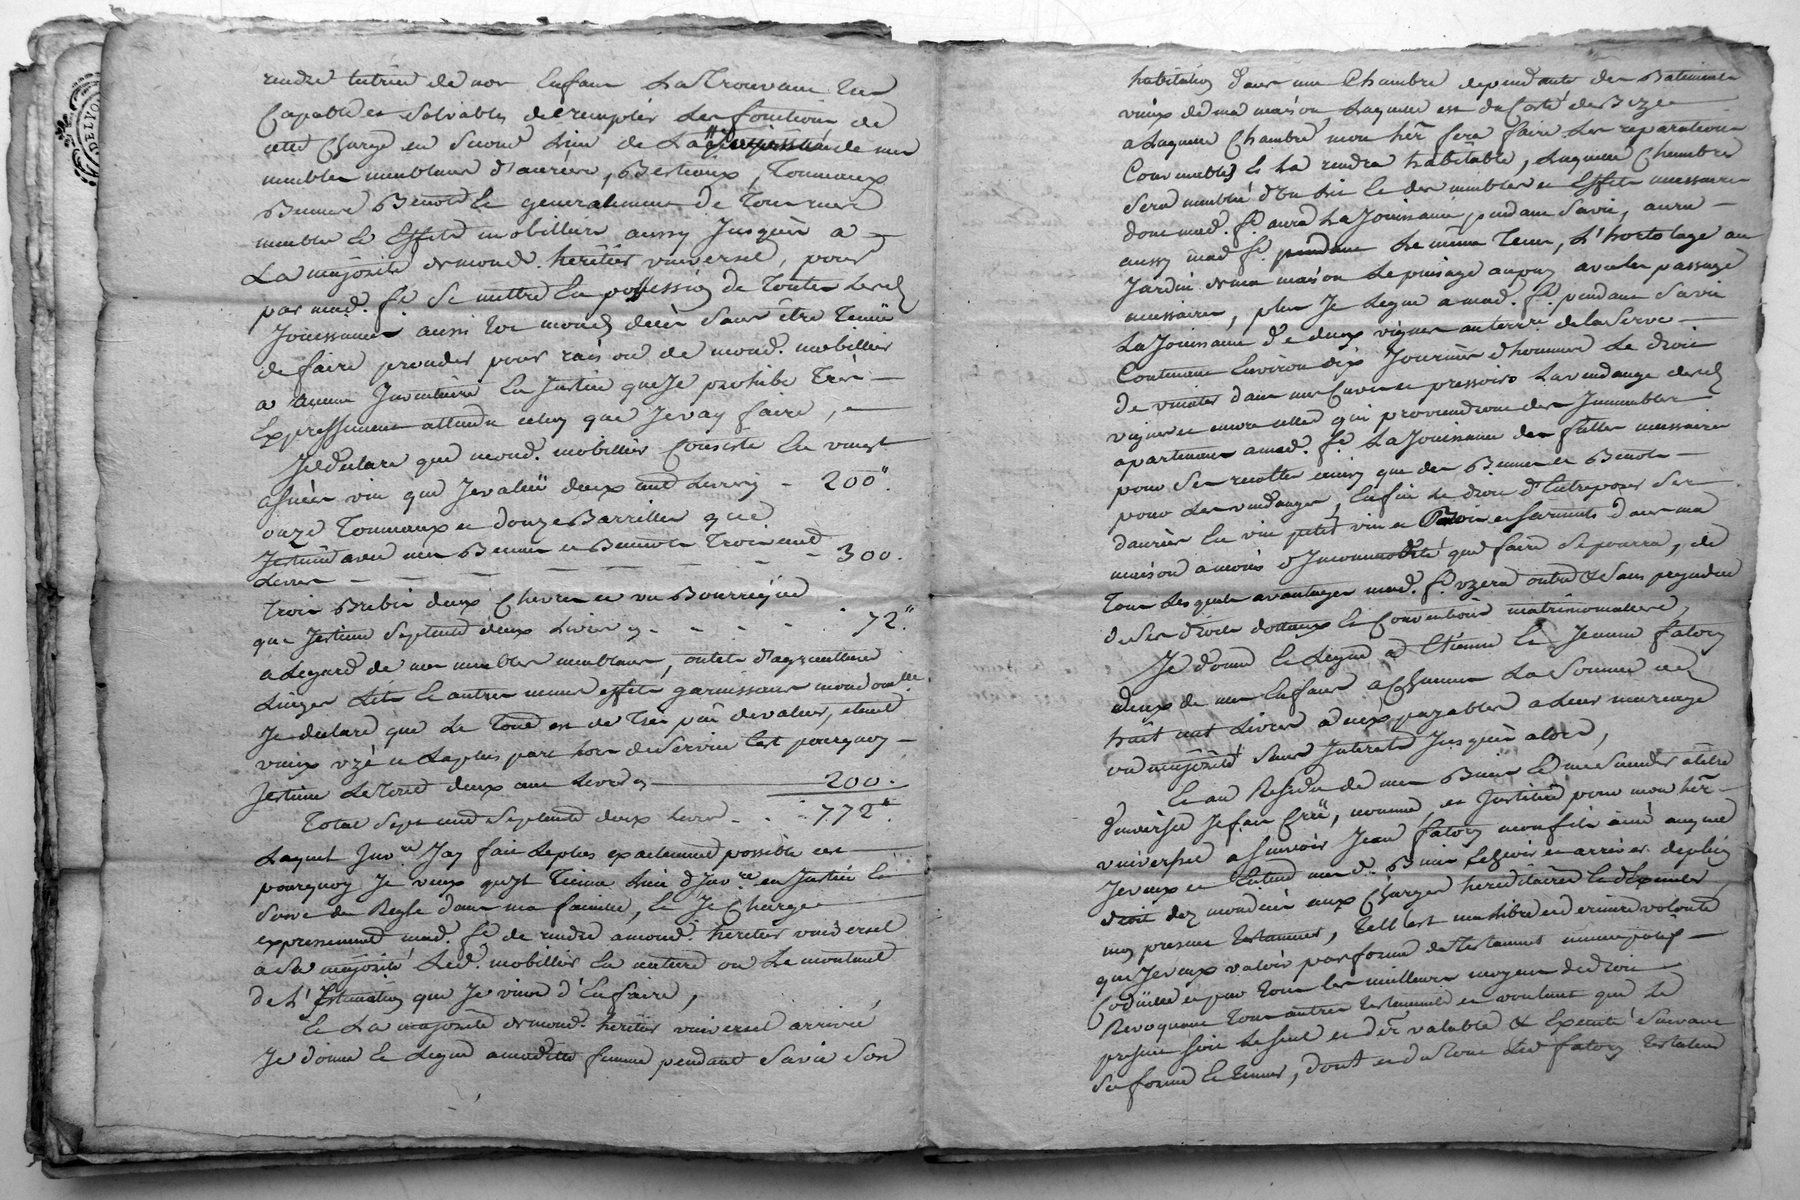 DELYON
rendre tutrice de nos Enfans La Trouvant tres
Capable et Solvable de remplir Les fonctions de
cette Charge en Second Lieu de La de mes
meubles meublans d'aurées, Bestiaux, Tonneaux
Bennes Benots Et generalement de Tous mes
meubles Et Effets mobilliers aussy Jusques a
La majorité de mond. heritier universel, pour
par mad. fe. Se mettre En possession de Toutes Lesd.
Jouissances aussi tot mond. decès Sans être Tenüe
de faire proceder pour raison de mond. mobillier
a aucun Inventaire En Justice que Je prohibe Très
Expressement attendu celuy que Je vay faire, et
Je declare que mond. mobillier Consiste En vingt
asnées vin que Jevalüe deux cent Livres - 200".
onze Tonneaux et douze Barrilles que
Jestime avec mes Bennes et Bennots Trois cent
Livres - - - - - - - 300.
Trois Brebis deux Chevres et un Bourrique
que Jestime Septente deux Livres - - - - 72."
a Legard de mes meubles meublans, outils d'agriculture
Linges Lits Et autres menus effets garnissans mond. omlle.
Je declare que Le Tout est de Très peu de valeur, etant
vieux uzé et La plus part hors de Service C'est pourquoy
Jestime Le Tout deux cent Livres 200.
Total Sept cent Septente deux Livres - - - 772".
Laquel Inv.re J'ay fait Le plus exactement possible c'est
pourquoy Je veux qu'il Tienne Lieu d'Inv.re en Justice Et
Serve de Regle dans ma famille, Et Je Charge
expressement mad. fe. de rendre a mond. heritier universel
a Sa majorité Led. mobillier En nature ou Le montant
de L'Estimation que Je viens d'En faire,
Et La majorité de mond. heritier universel arrivée
Je donne Et Legue a maditte femme pendant Sa vie Son
habitation dans une Chambre dependante des Batiments
vieux de ma maison, Laquelle est du Coté de Bize
a Laquelle Chambre mon her. fera faire Les reparations
Convenables Et La rendra habitable, Laquelle Chambre
Sera meublée d'Un Lit Et des meubles et Effets necessaires
dont mad. fe. aura La Jouissance pendant Sa vie, aura
aussy mad. fe. pendant Le même Tems, L'hortolage au
Jardin de ma maison Le puisage au puy avec les passages
necessaires, plus Je Legue a mad. fe. pendant Sa vie
La Jouissance de deux vignes au terre de la Serve
Contenant Environ dix Journées d'hommes Le droit
de vinder dans mes Cuves et pressoirs La vendange desd.
vignes et encore celles qui proviendront des Immeubles
apartenans a mad. fe. La Jouissance des futtes necessaires
pour Sa recolte ainsy que des Bennes et Benots
pour Les vendanges, Enfin Le droit d'Entreposer Ses
danrées En vin petit vin et Bois et Sarments dans ma
maison a moins d'Incommodité que faire Se pourra, de
Tous Lesquels avantages mad. fe. uzera outre et Sans prejudice
de Ses droits dottaux Et Conventions matrimoniales,
Je donne Et Legue a Etienne Et Jeanne fatoy
deux de mes Enfans a Chacun La Somme de
huit cent Livres a eux payables a Leur mariage
ou majorité Sans Interets Jusques alors,
Et au Residu de mes Biens Et
universel Je fais Créé, nommé et Institue pour mon her.
universel a Scavoir Jean fatoy mon fils ainé auquel
Je veux et Entend mesd. Biens Echoir et arriver de plein
droit dez mon decés aux Charges hereditaires Et d'Executer
mon present Testament, Telle est ma Libre et derniere volonté
que Je veux valoir par forme de Testament nuncupatif
Codicille et par Tous Les meilleurs moyens de droit
Revoquant Tous autres testaments et voulant que Le
present Soit Le Seul et der. valable & Executé Suivant
Sa forme Et Teneur, dont et du Tout Led. fatoy testateur